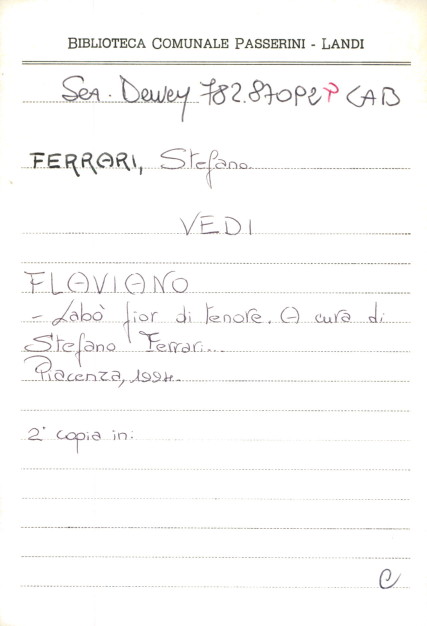 BIBLIOTECA COMUNALE PASSERINI - LANDI
Sea. Dewey 782.870P2P LAB
FERRARI, Stefano.
VEDI
FLAVIANO
- Labò fior di tenore. A cura di
Stefano Ferrari...
Piacenza, 1994.
2ª copia in:
C